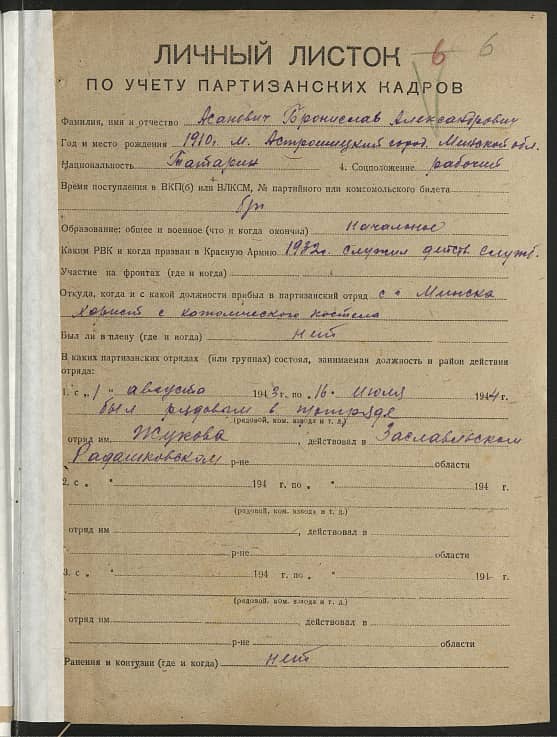 ЛИЧНЫЙ ЛИСТОК 6 6
ПО УЧЕТУ ПАРТИЗАНСКИХ КАДРОВ
Фамилия, имя и отчество Асанович Бронислав Александрович
Год и место рождения 1910 г. м. Астрошицкий город. Минской обл.
Национальность Татарин 4. Соцположение рабочий
Время поступления в ВКП(б) или ВЛКСМ, № партийного или комсомольского билета
б/п
Образование: общее и военное (что и когда окончил) начальное
Каким РВК и когда призван в Красную Армию 1932 г. служил действ службу.
Участие на фронтах (где и когда)
Откуда, когда и с какой должности прибыл в партизанский отряд с г. Минска
Хорист с католического костела
Был ли в плену (где и когда) нет
В каких партизанских отрядах (или группах) состоял, занимаемая должность и район действия
отряда:
1. с „1" августа 1943 г. по „16" июля 1944 г.
был рядовым в отряде
(рядовой, ком. взвода и т. д.)
отряд им. Жукова, действовал в Заславльском
Радашковском р-не области
2. с „ " 194 г. по „ " 194 г.
(рядовой, ком. взвода и т. д.)
отряд им , действовал в
р-не области
3. с „ " 194 г. по „ " 194 г.
(рядовой, ком. взвода и т. д.)
отряд им , действовал в
р-не области
Ранения и контузии (где и когда) нет